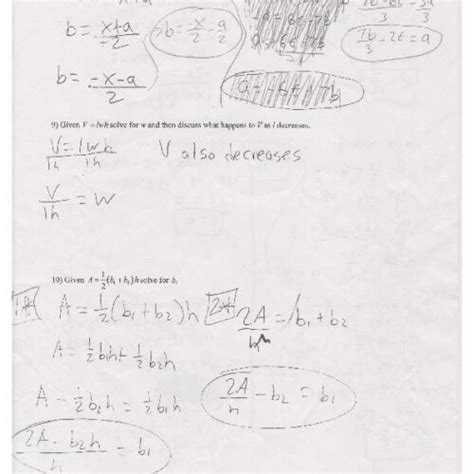 b = x+a / -2
b = -x/2 - a/2
7b/3 - 2t = a
b = -x-a / 2
9) Given V = lwh solve for w and then discuss what happens to V as l decreases.
V = lwh
lh lh
V also decreases
V/lh = w
10) Given A = 1/2(b₁ + b₂)h solve for b₁
1* A = 1/2(b₁+b₂)h
2* 2A/h = b₁ + b₂
A = 1/2b₁h + 1/2b₂h
A - 1/2b₂h = 1/2b₁h
2A/h - b₂ = b₁
2A - b₂h / h = b₁